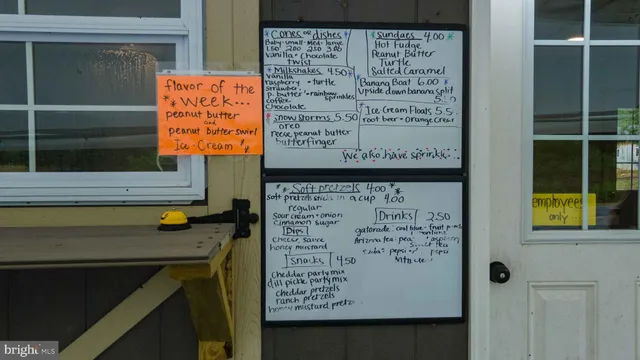 flavor of the
week...
peanut butter
and
peanut butter swirl
Ice-Cream
Cones or dishes
Baby-small-med-large
1.50 2.00 2.50 3.00
Vanilla-Chocolate
twist
Milkshakes 4.50
Vanilla
raspberry - turtle
strawber..
p. butter - rainbow
coffee sprinkles
Chocolate
Snow storms 5.50
oreo
reese peanut butter
butterfinger
Sundaes 4.00
Hot fudge
Peanut Butter
Turtle
Salted Caramel
Banana Boat 6.00
upside down banana split
Ice-Cream Floats 5.5
root beer - orange cream
We also have sprinkl...
Soft pretzels 4.00
soft pretzel sticks in a cup 4.00
regular
sour cream-onion
cinnamon sugar
Dips
cheese sauce
honey mustard
Snacks 4.50
cheddar party mix
dill pickle party mix
cheddar pretzels
ranch pretzels
honey mustard pretz
Drinks 2.50
gatorade: cool blue - fruit punch
Arizona tea:
pepsi
employees
only
bright MLS